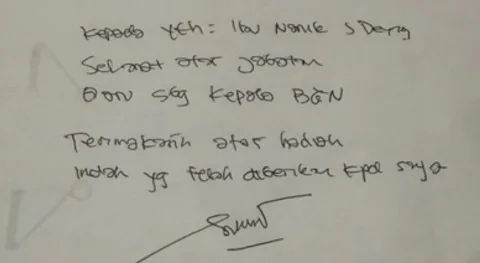 Kepada Yth: Ibu Nanik S Deyang
Selamat atas jabatan
sbg Kepala BGN
Terimakasih atas hadiah
Indah yg telah diberikan kpd saya